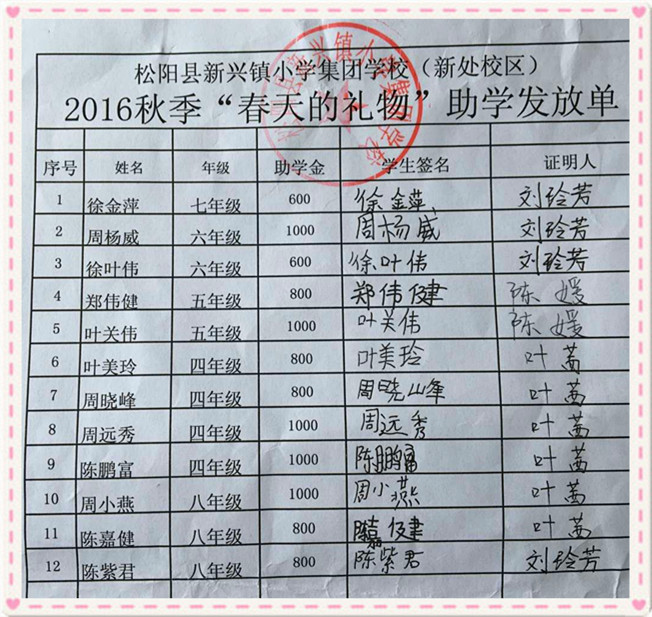 松阳县新兴镇小学集团学校（新处校区）
2016秋季“春天的礼物”助学发放单
序号 姓名 年级 助学金 学生签名 证明人
1 徐金萍 七年级 600 徐金萍 刘玲芳
2 周杨威 六年级 1000 周杨威 刘玲芳
3 徐叶伟 六年级 600 徐叶伟 刘玲芳
4 郑伟健 五年级 800 郑伟健 陈媛
5 叶关伟 五年级 1000 叶关伟 陈媛
6 叶美玲 四年级 800 叶美玲 叶茜
7 周晓峰 四年级 800 周晓峰 叶茜
8 周远秀 四年级 1000 周远秀 叶茜
9 陈鹏富 四年级 1000 陈鹏富 叶茜
10 周小燕 八年级 1000 周小燕 叶茜
11 陈嘉健 八年级 800 陈嘉健 叶茜
12 陈紫君 八年级 800 陈紫君 刘玲芳